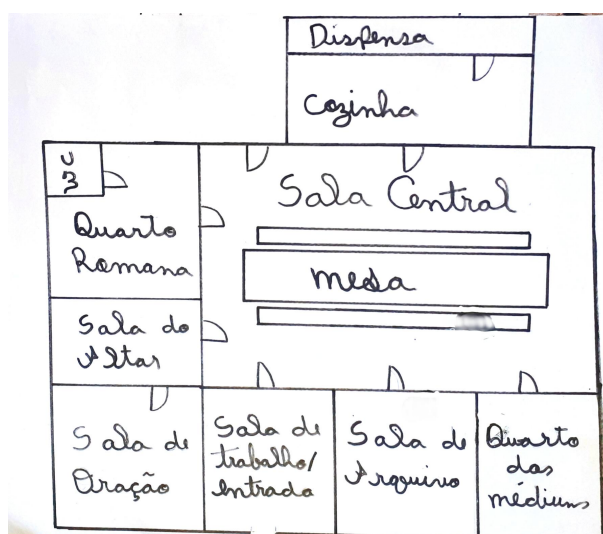 Dispensa
Cozinha
Sala Central
Quarto
Romana
mesa
Sala do
Altar
Sala de
Oração
Sala de
trabalho/
entrada
Sala de
Arquivo
Quarto
das
médiuns